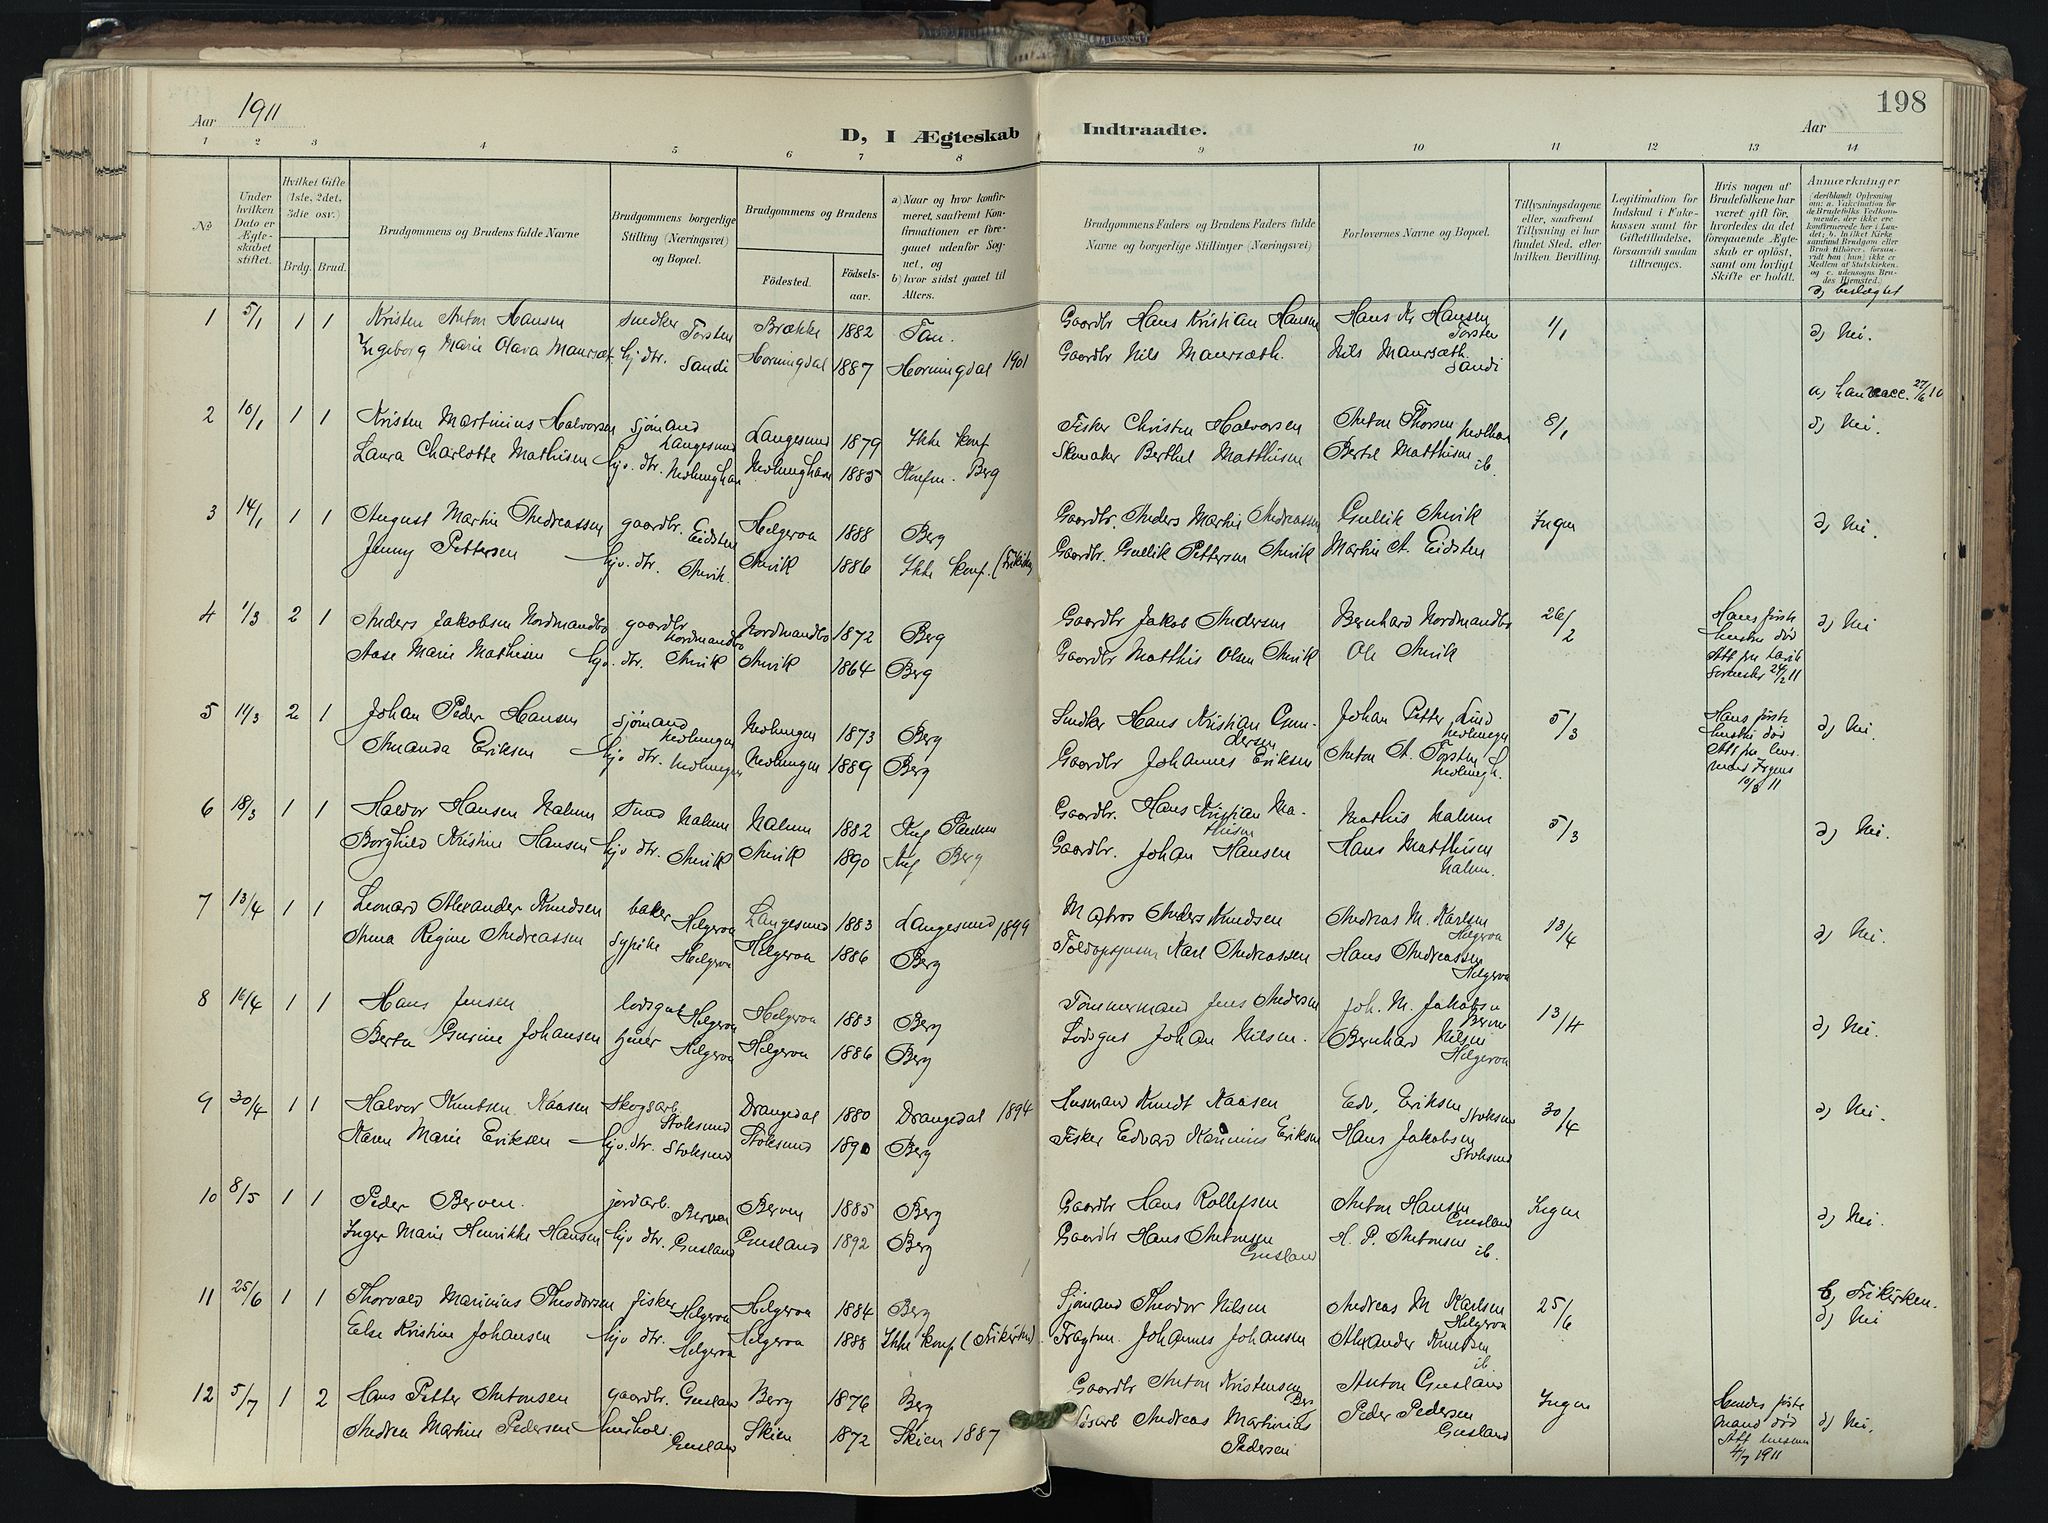 198
Aar 1911
D, I Ægteskab Indtraadte.
Aar
1 2 3 4 5 6 7 8 9 10 11 12 13 14
№
Under hvilken Dato er Ægteskabet stiftet.
Hvilket Gifte (1ste, 2det, 3die osv.)
Brdg. Brud.
Brudgommens og Brudens fulde Navne
Brudgommens borgerlige Stilling (Næringsvei) og Bopæl.
Brudgommens og Brudens
Fødested. Fødselsaar.
a) Naar og hvor konfirmeret, saafremt Konfirmationen er foregaaet udenfor Sognet, og
b) hvor sidst gaaet til Alters.
Brudgommens Faders og Brudens Faders fulde Navne og borgerlige Stillinger (Næringsvei)
Forlovernes Navne og Bopæl.
Tillysningsdagene eller, saafremt Tillysning ei har fundet Sted, efter hvilken Bevilling.
Legitimation for Indskud i Enkekassen samt for Giftetilladelse, forsaavidt saadan tiltrænges.
Hvis nogen af Brudefolkene har været gift før, hvorledes da det foregaaende Ægteskab er opløst, samt om lovligt Skifte er holdt.
Anmærkninger
d, beslægtet
1 5/1 1 1 Kristen Anton Hansen Snedker Torsten Brække 1882 Tan. Gaardbr Hans Kristian Hansen Hans Kr Hansen Torsten 1/1 d, Nei.
Ingeborg Marie Olava Maursæt hj. dtr. Sandi Horningdal 1887 Horningdal 1901 Gaardbr Nils Maursæth. Nils Maursæth. Sandi
2 10/1 1 1 Kristen Martinius Halvorsen sjömand Langesund Langesund 1879 Ikke konf Fisker Christen Halvorsen Anton Thorsen 8/1 a, 27/6 10 d, Nei.
Laura Charlotte Mathisen hjv. dtr. 1885 Konfm. Berg Skomaker Berthel Matthisen Bertel Matthisen ib.
3 14/1 1 1 August Martin Andreassen gaardbr. Eidsten Helgeroa 1888 Berg Gaardbr. Anders Martin Andreassen Gullik Anvik Ingen d, Nei.
Jenny Pettersen hjv. dtr. Anvik. Anvik 1886 Ikke konf. Gaardbr. Gullik Pettersen Anvik Martin A. Eidsten
4 1/3 2 1 Anders Jakobsen Nordmandbo gaardbr Nordmandbo Nordmandbo 1872 Berg Gaardbr Jakob Andersen Bernhard Nordmandbo 26/2 Hans første hustru död Att fra 24/2 11 d, Nei
Aase Marie Mathisen hjv. dtr. Anvik Anvik 1864 Berg Gaardbr Matthis Olsen Anvik Ole Anvik
5 11/3 2 1 Johan Peder Hansen sjömand Nevlungen Nevlungen 1873 Berg Snedker Hans Kristian Gundersen Johan Petter Lind Nevlungen 5/3 Hans første hustru död Att fra 11 d, Nei.
Amanda Eriksen hjv dtr. Nevlungen Nevlungen 1889 Berg Gaardbr Johannes Eriksen Anton A. Torsten Nevlungh.
6 18/3 1 1 Haldor Hansen Nalum Smed Nalum Nalum 1882 Gaardbr. Hans Kristian Mathisen Mathis Nalum 5/3 d, Nei.
Borghild Kristine Hansen hjv dtr. Anvik Anvik 1890 Berg Gaardbr. Johan Hansen Hans Matthisen Nalum.
7 13/4 1 1 Leonard Alexander Knudsen baker Helgeroa Langesund 1883 Langesund 1899 Matros Anders Knudsen Andreas M. Karlsen Helgeroa 13/4 d, Nei.
Anna Regine Andreassen sypike Helgeroa Helgeroa 1886 Berg Toldopsynsm Karl Andreassen Hans Andreassen Helgeroa
8 16/4 1 1 Hans Jensen lodsgut Helgeroa Helgeroa 1883 Berg Tömmermand Jens Andersen Joh. M. Jakobsen 13/4 d, Nei.
Berta Gurine Johansen Helgeroa Helgeroa 1886 Berg Lodsgut Johan Nilsen. Bernhard Nilsen Helgeroa
9 30/4 1 1 Halvor Knutsen Naasen Skogsarb Stoksund Drangedal 1880 Drangedal 1894 Husmand Knudt Naasen Edv. Eriksen Stoksund 30/4 d, Nei.
Karen Marie Eriksen hjv. dtr. Stoksund Stoksund 1890 Berg Fisker Edvard Eriksen Hans Jakobsen Stoksund
10 8/5 1 1 Peder Berven. jordarb. Berven Berven 1885 Berg Gaardbr Hans Rollefsen Anton Hansen Gusland Ingen d, Nei.
Inger Marie Henrikke Hansen hjv dtr. Gusland Gusland 1892 Berg Gaardbr Hans Antonsen Gusland H. P. Antonsen ib.
11 25/6 1 1 Thorvald Marinius Theodorsen fisker Helgeroa Helgeroa 1884 Berg Sjömand Theodor Nilsen Andreas M Karlsen Helgeroa 25/6 b, Frikirken. d, Nei
Else Kristine Johansen hjv dtr. Helgeroa Helgeroa 1888 Ikke konf Fragtm. Johannes Johansen Alexander Knudsen ib.
12 5/7 1 2 Hans Petter Antonsen gaardbr. Gusland Berg 1876 Berg Gaardbr Anton Kristensen Anton Gusland Ingen Hendes første mand död 4/7 1911 d, Nei.
Andrea Martine Pedersen hushold. Gusland Skien 1872 Skien 1887 Andreas Martinius Pedersen Peder Pedersen Gusland